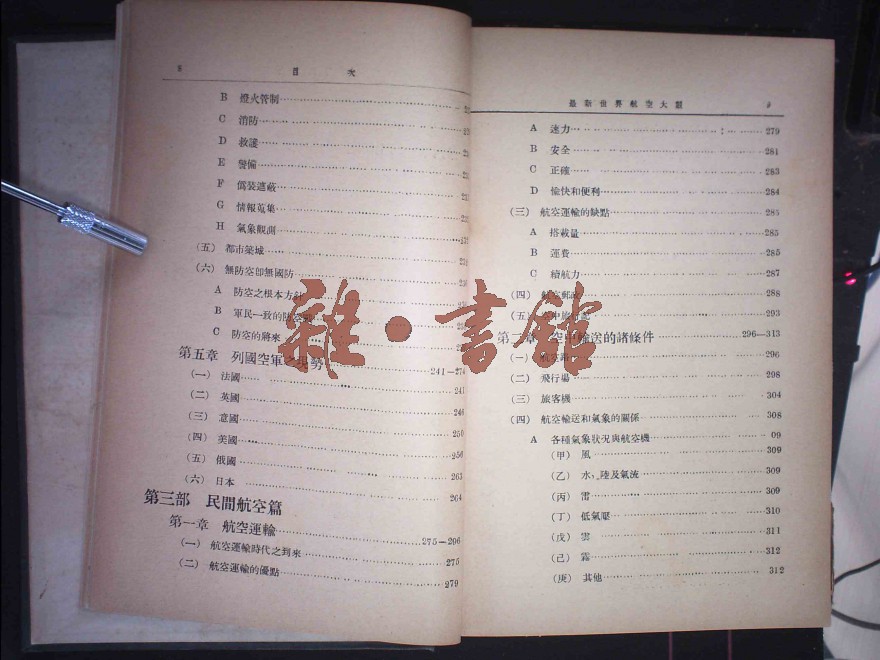 8 目次
B 燈火管制
C 消防
D 救護
E 警備
F 僞裝遮蔽
G 情報蒐集
H 氣象觀測
(五) 都市築城
(六) 無防空卽無國防
A 防空之根本方針
B 軍民一致的防空
C 防空的將來
第五章 列國空軍之現勢 241—274
(一) 法國 241
(二) 英國 246
(三) 意國 250
(四) 美國 256
(五) 俄國 263
(六) 日本 264
第三部 民間航空篇
第一章 航空運輸 275—296
(一) 航空運輸時代之到來 275
(二) 航空運輸的優點 279
最新世界航空大觀 9
A 速力 279
B 安全 281
C 正確 283
D 愉快和便利 284
(三) 航空運輸的缺點 285
A 搭載量 285
B 運費 285
C 續航力 287
(四) 航空郵政 288
(五) 空中旅行記 293
第二章 空中輸送的諸條件 296—313
(一) 航空路 296
(二) 飛行場 298
(三) 旅客機 304
(四) 航空輸送和氣象的關係 308
A 各種氣象狀況與航空機 09
(甲) 風 309
(乙) 水,陸及氣流 309
(丙) 雷 309
(丁) 低氣壓 310
(戊) 雲 311
(己) 霧 312
(庚) 其他 312
雜·書館